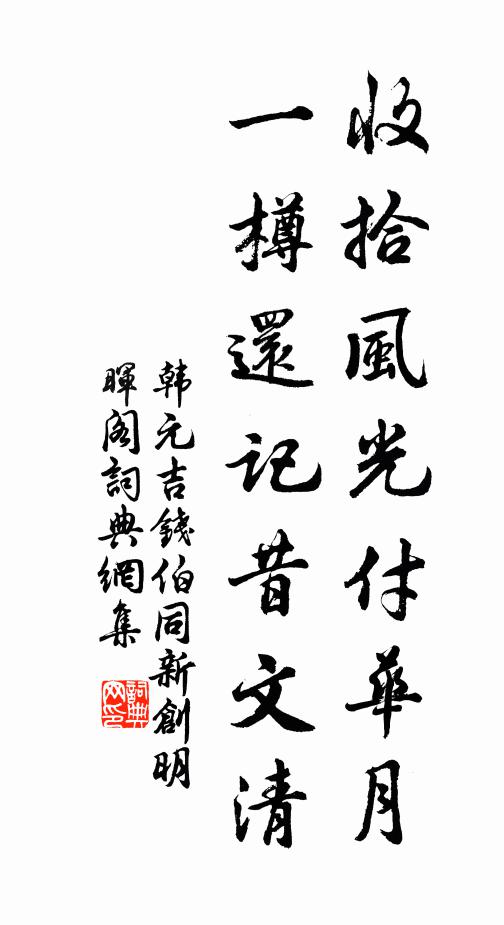 收拾風光付華月
一樽還記昔文清
韩元吉錢伯同新創明
暉阁詞典網集
詞典
网印